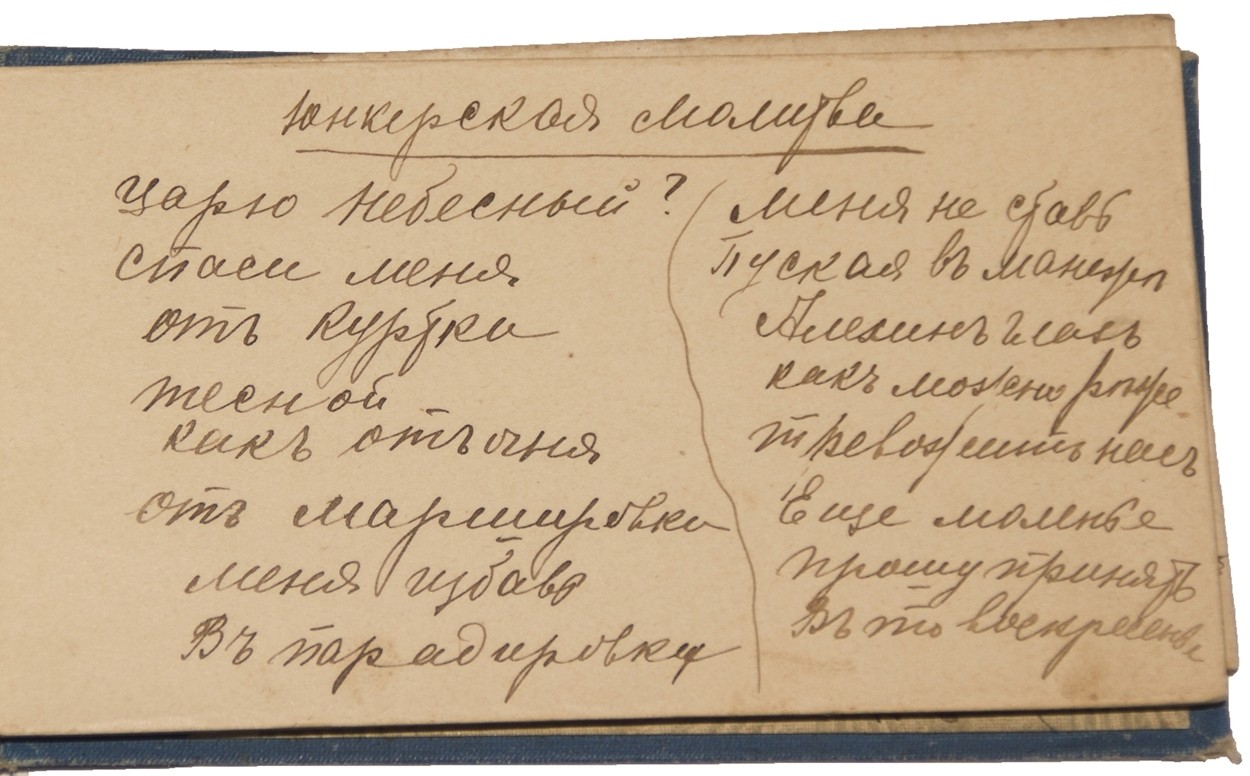 Юнкерская Молитва
Царю небесный?
спаси меня
отъ куртки
тесной
какъ отъ огня
отъ маршировки
меня избавь
Въ парадировку
меня не ставь
Пуская въ манежъ
Алехинъ гласъ
какъ можно реже
тревожить насъ
Еще моленье
прошу принять
Въ то воскресенье